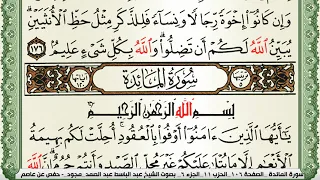 وَإِن كَانُوٓا۟ إِخْوَةً رِّجَالًا وَنِسَآءً فَلِلذَّكَرِ مِثْلُ حَظِّ ٱلْأُنثَيَيْنِ
يُبَيِّنُ ٱللَّهُ لَكُمْ أَن تَضِلُّوا۟ وَٱللَّهُ بِكُلِّ شَىْءٍ عَلِيمٌۢ ١٧٦
سُورَةُ المَائِدَةِ
بِسْمِ ٱللَّهِ ٱلرَّحْمَٰنِ ٱلرَّحِيمِ
يَٰٓأَيُّهَا ٱلَّذِينَ ءَامَنُوٓا۟ أَوْفُوا۟ بِٱلْعُقُودِ أُحِلَّتْ لَكُم بَهِيمَةُ
ٱلْأَنْعَٰمِ إِلَّا مَا يُتْلَىٰ عَلَيْكُمْ غَيْرَ مُحِلِّى ٱلصَّيْدِ وَأَنتُمْ حُرُمٌ إِنَّ ٱللَّهَ
سورة المائدة _ الصفحة ١٠٦ _ الجزء ٦ _ بصوت الشيخ عبد الباسط عبد الصمد _ مجود _ حفص عن عاصم